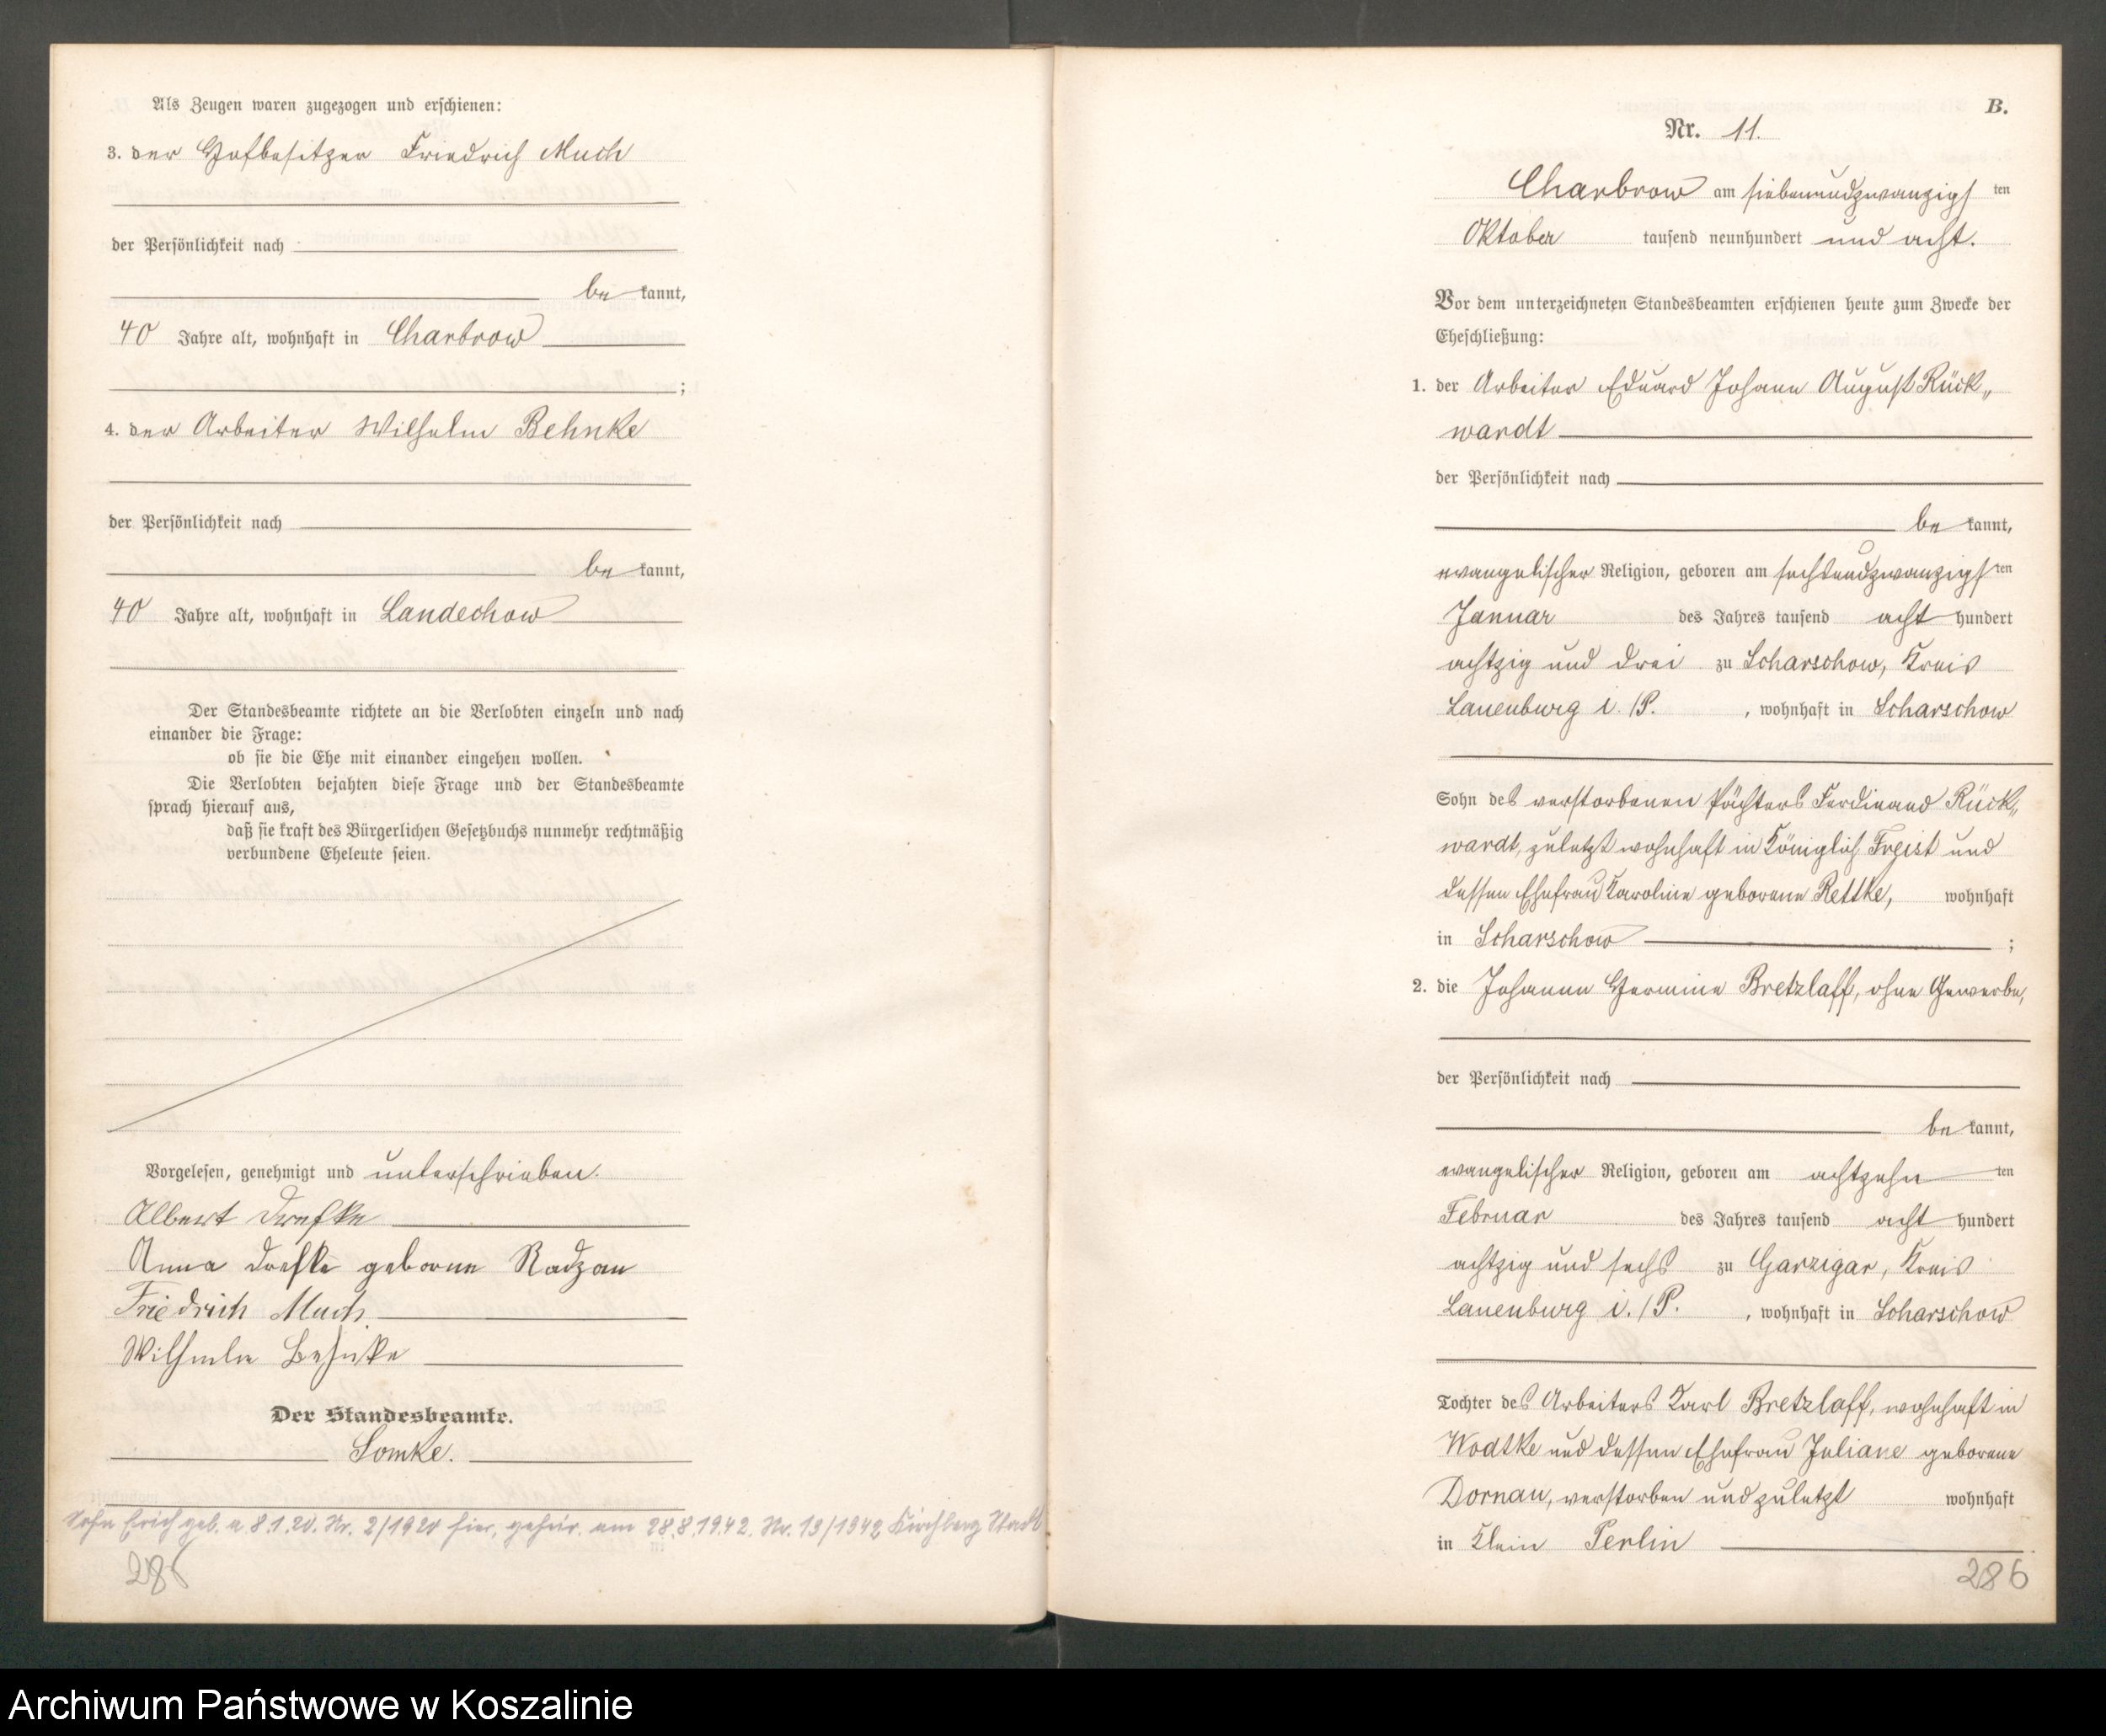 Als Zeugen waren zugezogen und erschienen:
3. der Hofbesitzer Friedrich Much
der Persönlichkeit nach
be kannt,
40 Jahre alt, wohnhaft in Charbrow
;
4. der Arbeiter Wilhelm Behnke
der Persönlichkeit nach
be kannt,
40 Jahre alt, wohnhaft in Landechow
Der Standesbeamte richtete an die Verlobten einzeln und nach
einander die Frage:
ob sie die Ehe mit einander eingehen wollen.
Die Verlobten bejahten diese Frage und der Standesbeamte
sprach hierauf aus,
daß sie kraft des Bürgerlichen Gesetzbuchs nunmehr rechtmäßig
verbundene Eheleute seien.
Vorgelesen, genehmigt und unterschrieben.
Albert Drefke
Anna Drefke geborne Radzau
Friedrich Much.
Wilhelm Behnke
Der Standesbeamte.
Lomke.
Sohn Erich geb. a 8.1.20. Nr. 2/1920 hier, geheir. am 28.8.1942. Nr. 13/1942 Kirchberg Stadt
286
B.
Nr. 11.
Charbrow am siebenundzwanzigs ten
Oktober tausend neunhundert und acht.
Vor dem unterzeichneten Standesbeamten erschienen heute zum Zwecke der
Eheschließung:
1. der Arbeiter Eduard Johann August Rück„
wardt
der Persönlichkeit nach
be kannt,
evangelischer Religion, geboren am sechsundzwanzigs ten
Januar des Jahres tausend acht hundert
achtzig und drei zu Scharschow, Kreis
Lauenburg i./P. , wohnhaft in Scharschow
Sohn des verstorbenen Pächters Ferdinand Rück„
wardt, zuletzt wohnhaft in Königlich Freist und
dessen Ehefrau Karoline geborene Rettke, wohnhaft
in Scharschow ;
2. die Johanne Hermine Bretzlaff, ohne Gewerbe,
der Persönlichkeit nach
be kannt,
evangelischer Religion, geboren am achtzehn ten
Februar des Jahres tausend acht hundert
achtzig und sechs zu Garzigar, Kreis
Lauenburg i./P. , wohnhaft in Scharschow
Tochter des Arbeiters Karl Bretzlaff, wohnhaft in
Wodtke und dessen Ehefrau Juliane geborene
Dornau, verstorben und zuletzt wohnhaft
in Klein Perlin
286
Archiwum Państwowe w Koszalinie